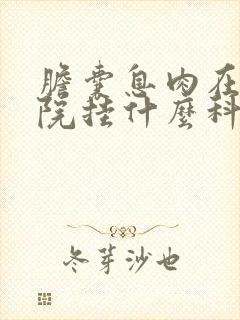 膽囊息肉在
院挂什麼科
冬芽沙也